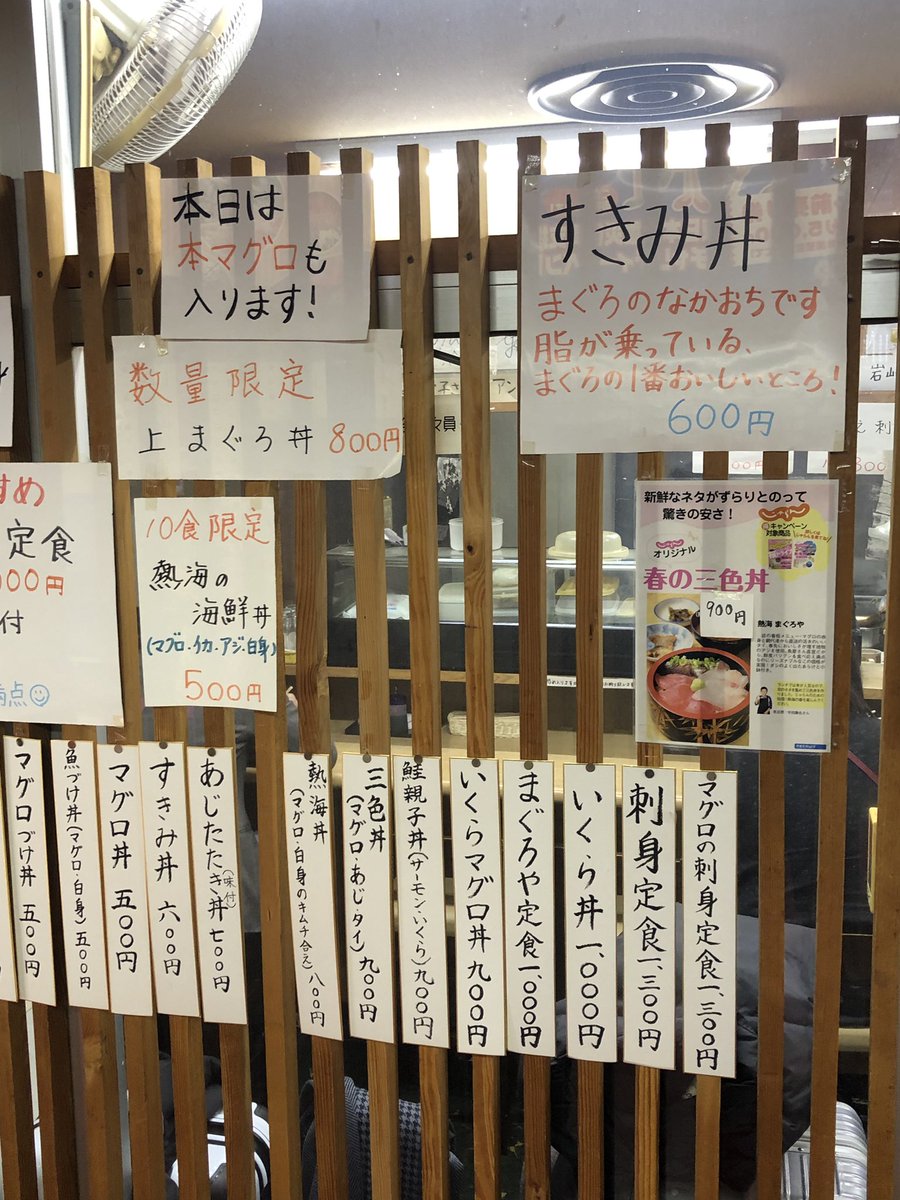 本日は
本マグロも
入ります!
数量限定
上 まぐろ丼 800円
すきみ丼
まぐろのなかおちです
脂が乗っている、
まぐろの1番おいしいところ!
600円
すめ
定食
00円
付
満点
10食限定
熱海の
海鮮丼
(マグロ・イカ・アジ・白身)
500円
新鮮なネタがずらりとのって
驚きの安さ!
キャンペーン
対象商品
オリジナル
春の三色丼
900円
熱海 まぐろや
マグロの刺身定食 一、三〇〇円
刺身定食 一、三〇〇円
いくら丼 一、〇〇〇円
まぐろや定食 一、〇〇〇円
いくらマグロ丼 九〇〇円
鮭親子丼(サーモン・いくら) 九〇〇円
三色丼(マグロ・あじ・タイ) 九〇〇円
熱海丼(マグロ・白身のキムチ合え) 八〇〇円
あじたたき丼(味付) 七〇〇円
すきみ丼 六〇〇円
マグロ丼 五〇〇円
魚づけ丼(マグロ・白身) 五〇〇円
マグロづけ丼 五〇〇円